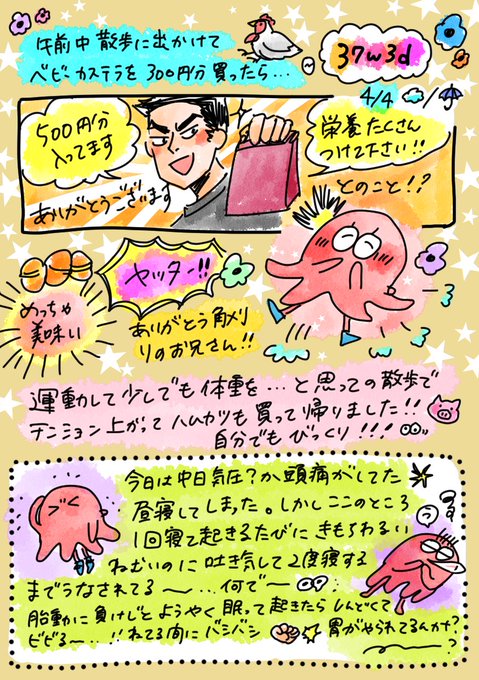 午前中散歩に出かけて
ベビーカステラを300円分買ったら…
37w3d
4/4
500円分
入ってます
ありがとうございます
栄養たくさん
つけて下さい!!
とのこと!?
めっちゃ
美味い
ヤッター!!
ありがとう角刈
りのお兄さん!!
運動して少しでも体重を…と思っての散歩で
テンション上がってハムカツも買って帰りました!!
自分でもびっくり!!!
今日は中日気圧?か頭痛がしてた
昼寝してしまった。しかしここのところ
1回寝て起きるたびにきもちわるい
ねむいのに吐き気して2度寝する
までうなされてる〜…何で〜
胎動に負けじとようやく眠って起きたらしんどくて
ビビる〜…!!ねてる間にバシバシ
胃がやられてるんか?
〜?